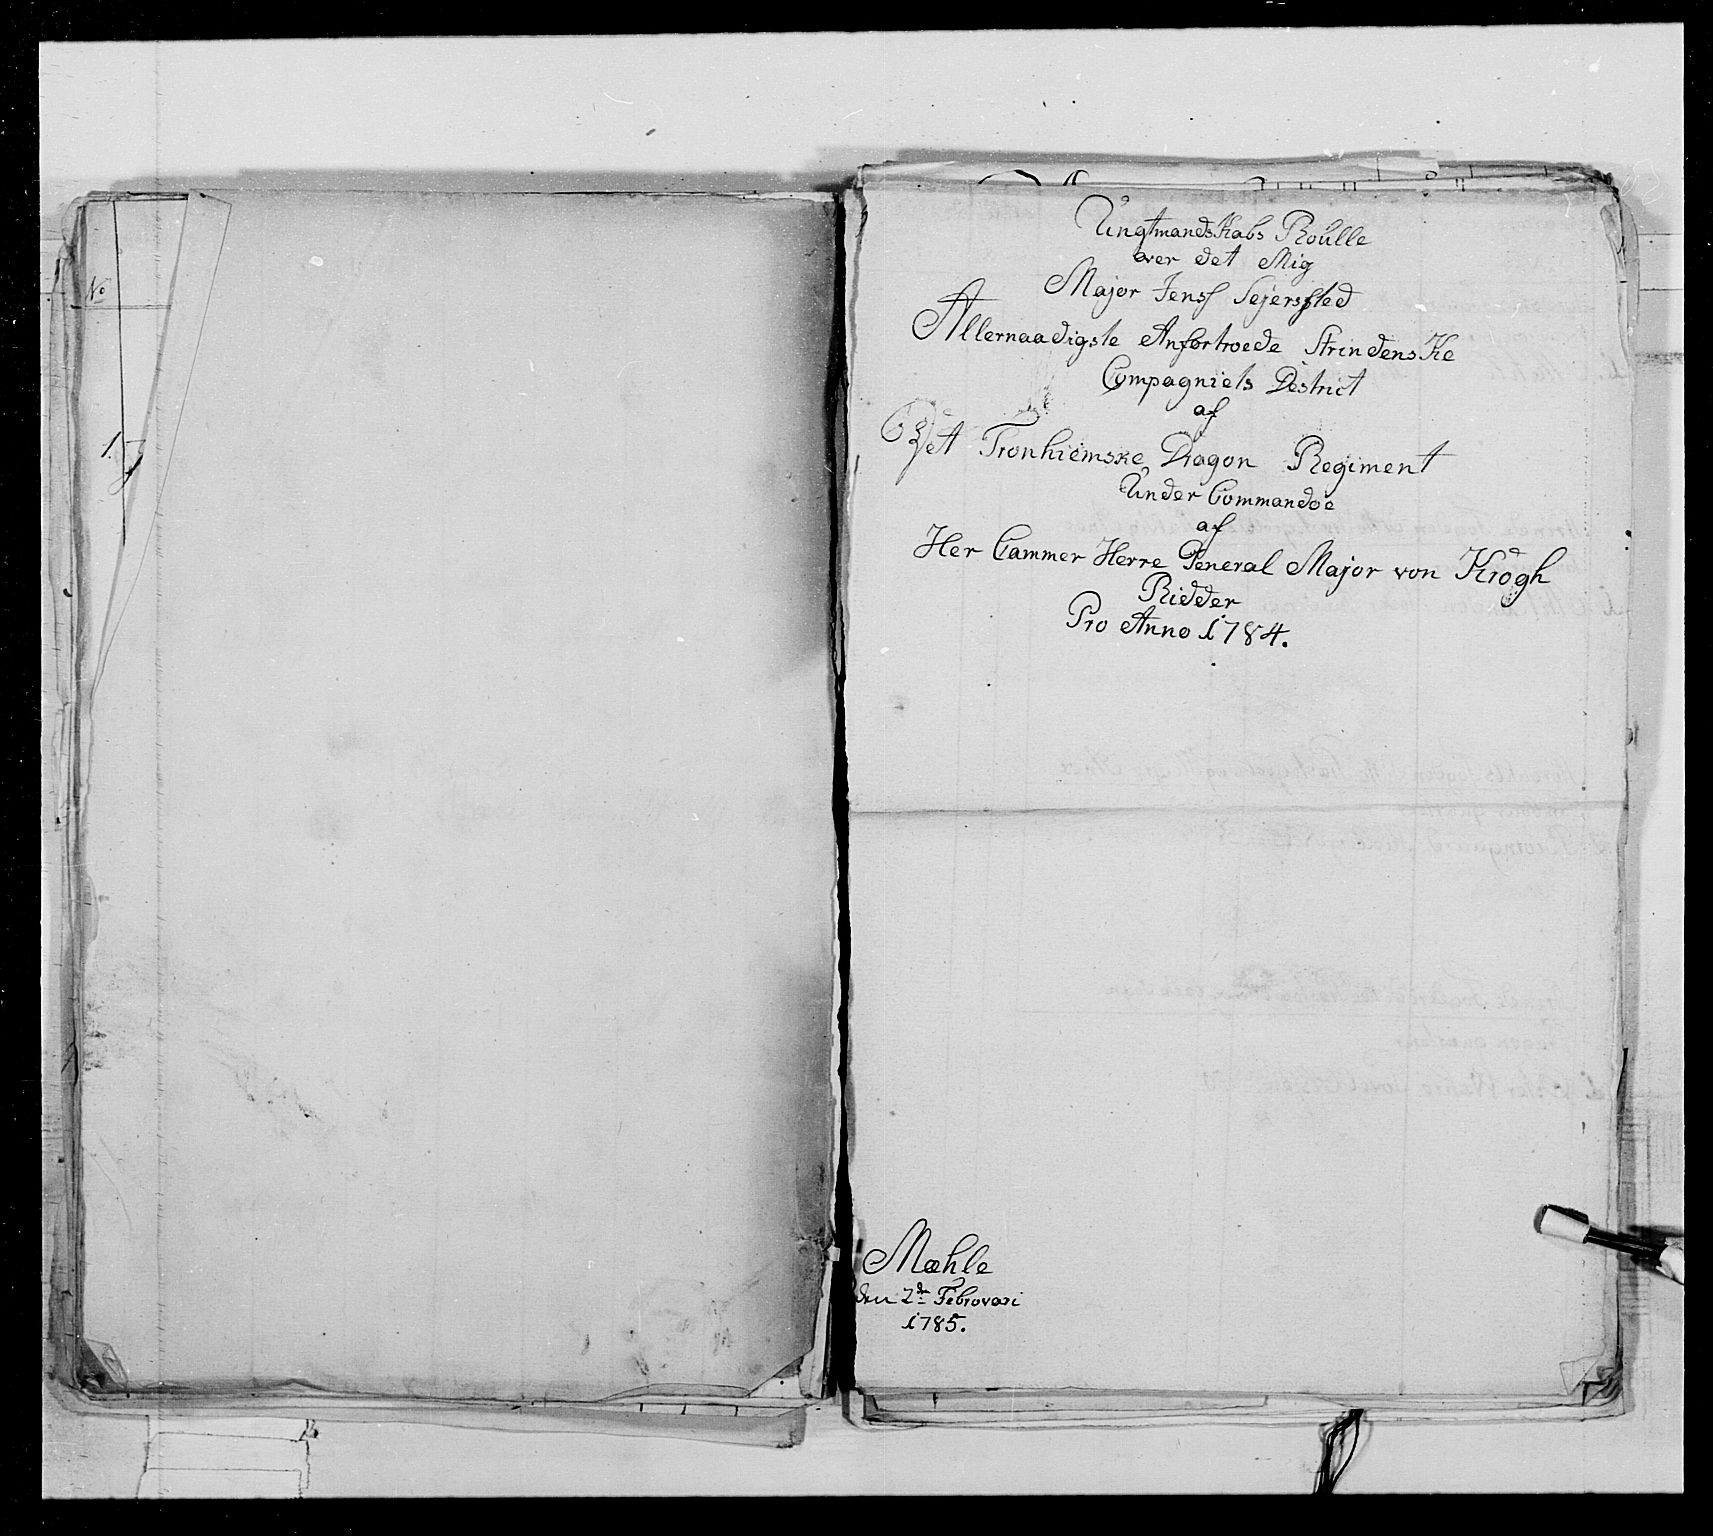 No
1.
Ungtmandskabs Roulle
over det Mig
Major Jenss Sejersted
Allernaadigste Anfortroede Strindenske
Compagniets Destrict
af
Det Tronhiemske Dragon Regiment
Under Commandoe
af
Her Cammer Herre General Major von Krogh
Ridder
Pro Anno 1784.
Mæhle
den 2den Febrovari
1785.